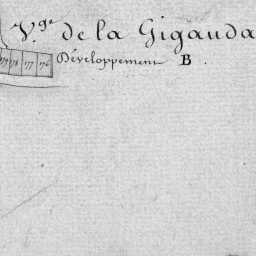 V.ge de la Gigauda
Développement B.
178 177 176